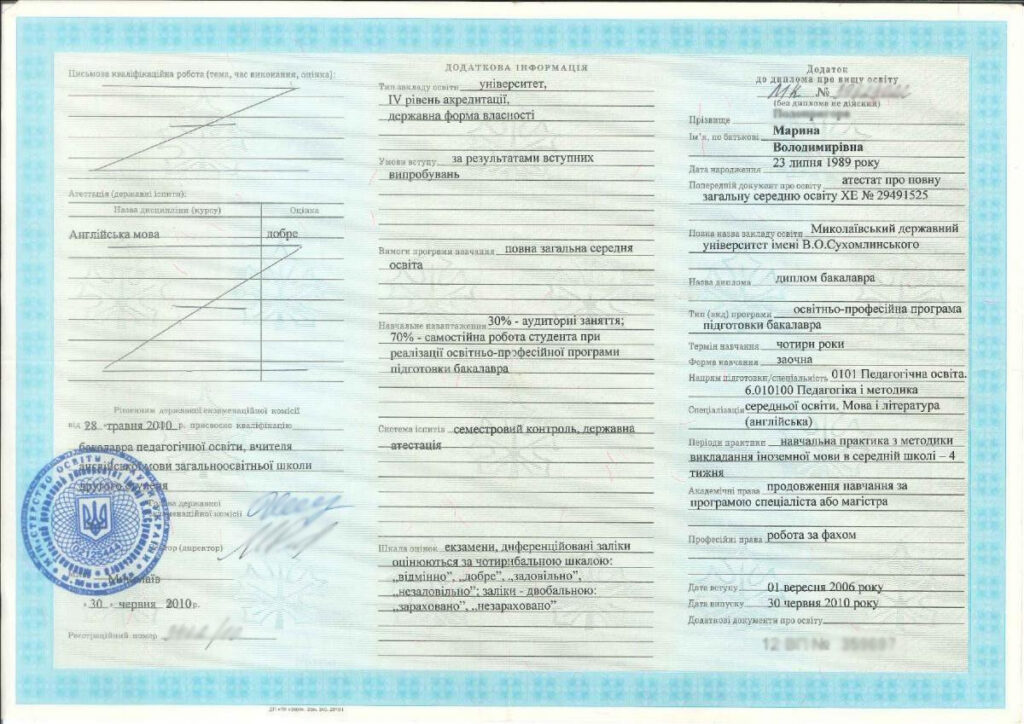 Письмова кваліфікаційна робота (тема, час виконання, оцінка):
Атестація (державні іспити):
Назва дисципліни (курсу) Оцінка
Англійська мова добре
Рішенням державної екзаменаційної комісії
від 28 травня 2010 р. присвоєно кваліфікацію
бакалавра педагогічної освіти, вчителя
англійської мови загальноосвітньої школи
другого ступеня
державної
комісії
(директор)
30 червня 2010р.
Реєстраційний номер
ДОДАТКОВА ІНФОРМАЦІЯ
Тип закладу освіти університет,
IV рівень акредитації,
державна форма власності
Умови вступу за результатами вступних
випробувань
Вимоги програми навчання повна загальна середня
освіта
Навчальне навантаження 30% - аудиторні заняття;
70% - самостійна робота студента при
реалізації освітньо-професійної програми
підготовки бакалавра
Система іспитів семестровий контроль, державна
атестація
Шкала оцінок екзамени, диференційовані заліки
оцінюються за чотирибальною шкалою:
„відмінно”,„добре”, „задовільно”,
„незадовільно”; заліки - двобальною:
„зараховано”,„незараховано”
Додаток
до диплома про вищу освіту
МК №
(без диплома не дійсний)
Прізвище
Ім'я, по батькові Марина
Володимирівна
Дата народження 23 липня 1989 року
Попередній документ про освіту атестат про повну
загальну середню освіту ХЕ № 29491525
Повна назва закладу освіти Миколаївський державний
університет імені В.О.Сухомлинського
Назва диплома диплом бакалавра
Тип (вид) програми освітньо-професійна програма
підготовки бакалавра
Термін навчання чотири роки
Форма навчання заочна
Напрям підготовки/спеціальність 0101 Педагогічна освіта.
6.010100 Педагогіка і методика
Спеціалізація середньої освіти. Мова і література
(англійська)
Періоди практики навчальна практика з методики
викладання іноземної мови в середній школі – 4
тижня
Академічні права продовження навчання за
програмою спеціаліста або магістра
Професійні права робота за фахом
Дата вступу 01 вересня 2006 року
Дата випуску 30 червня 2010 року
Додаткові документи про освіту
12 ВП №